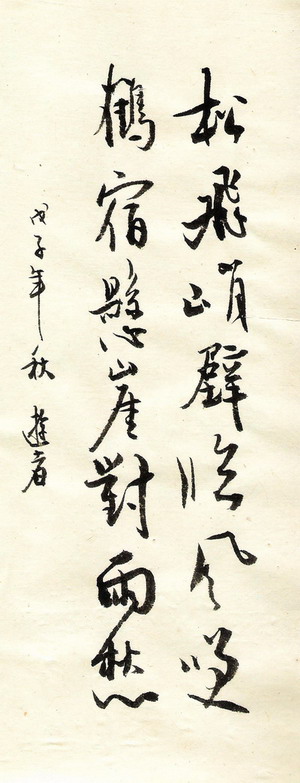 松飛峭壁臨風嘆
鶴宿懸崖對雨愁
戊子年秋